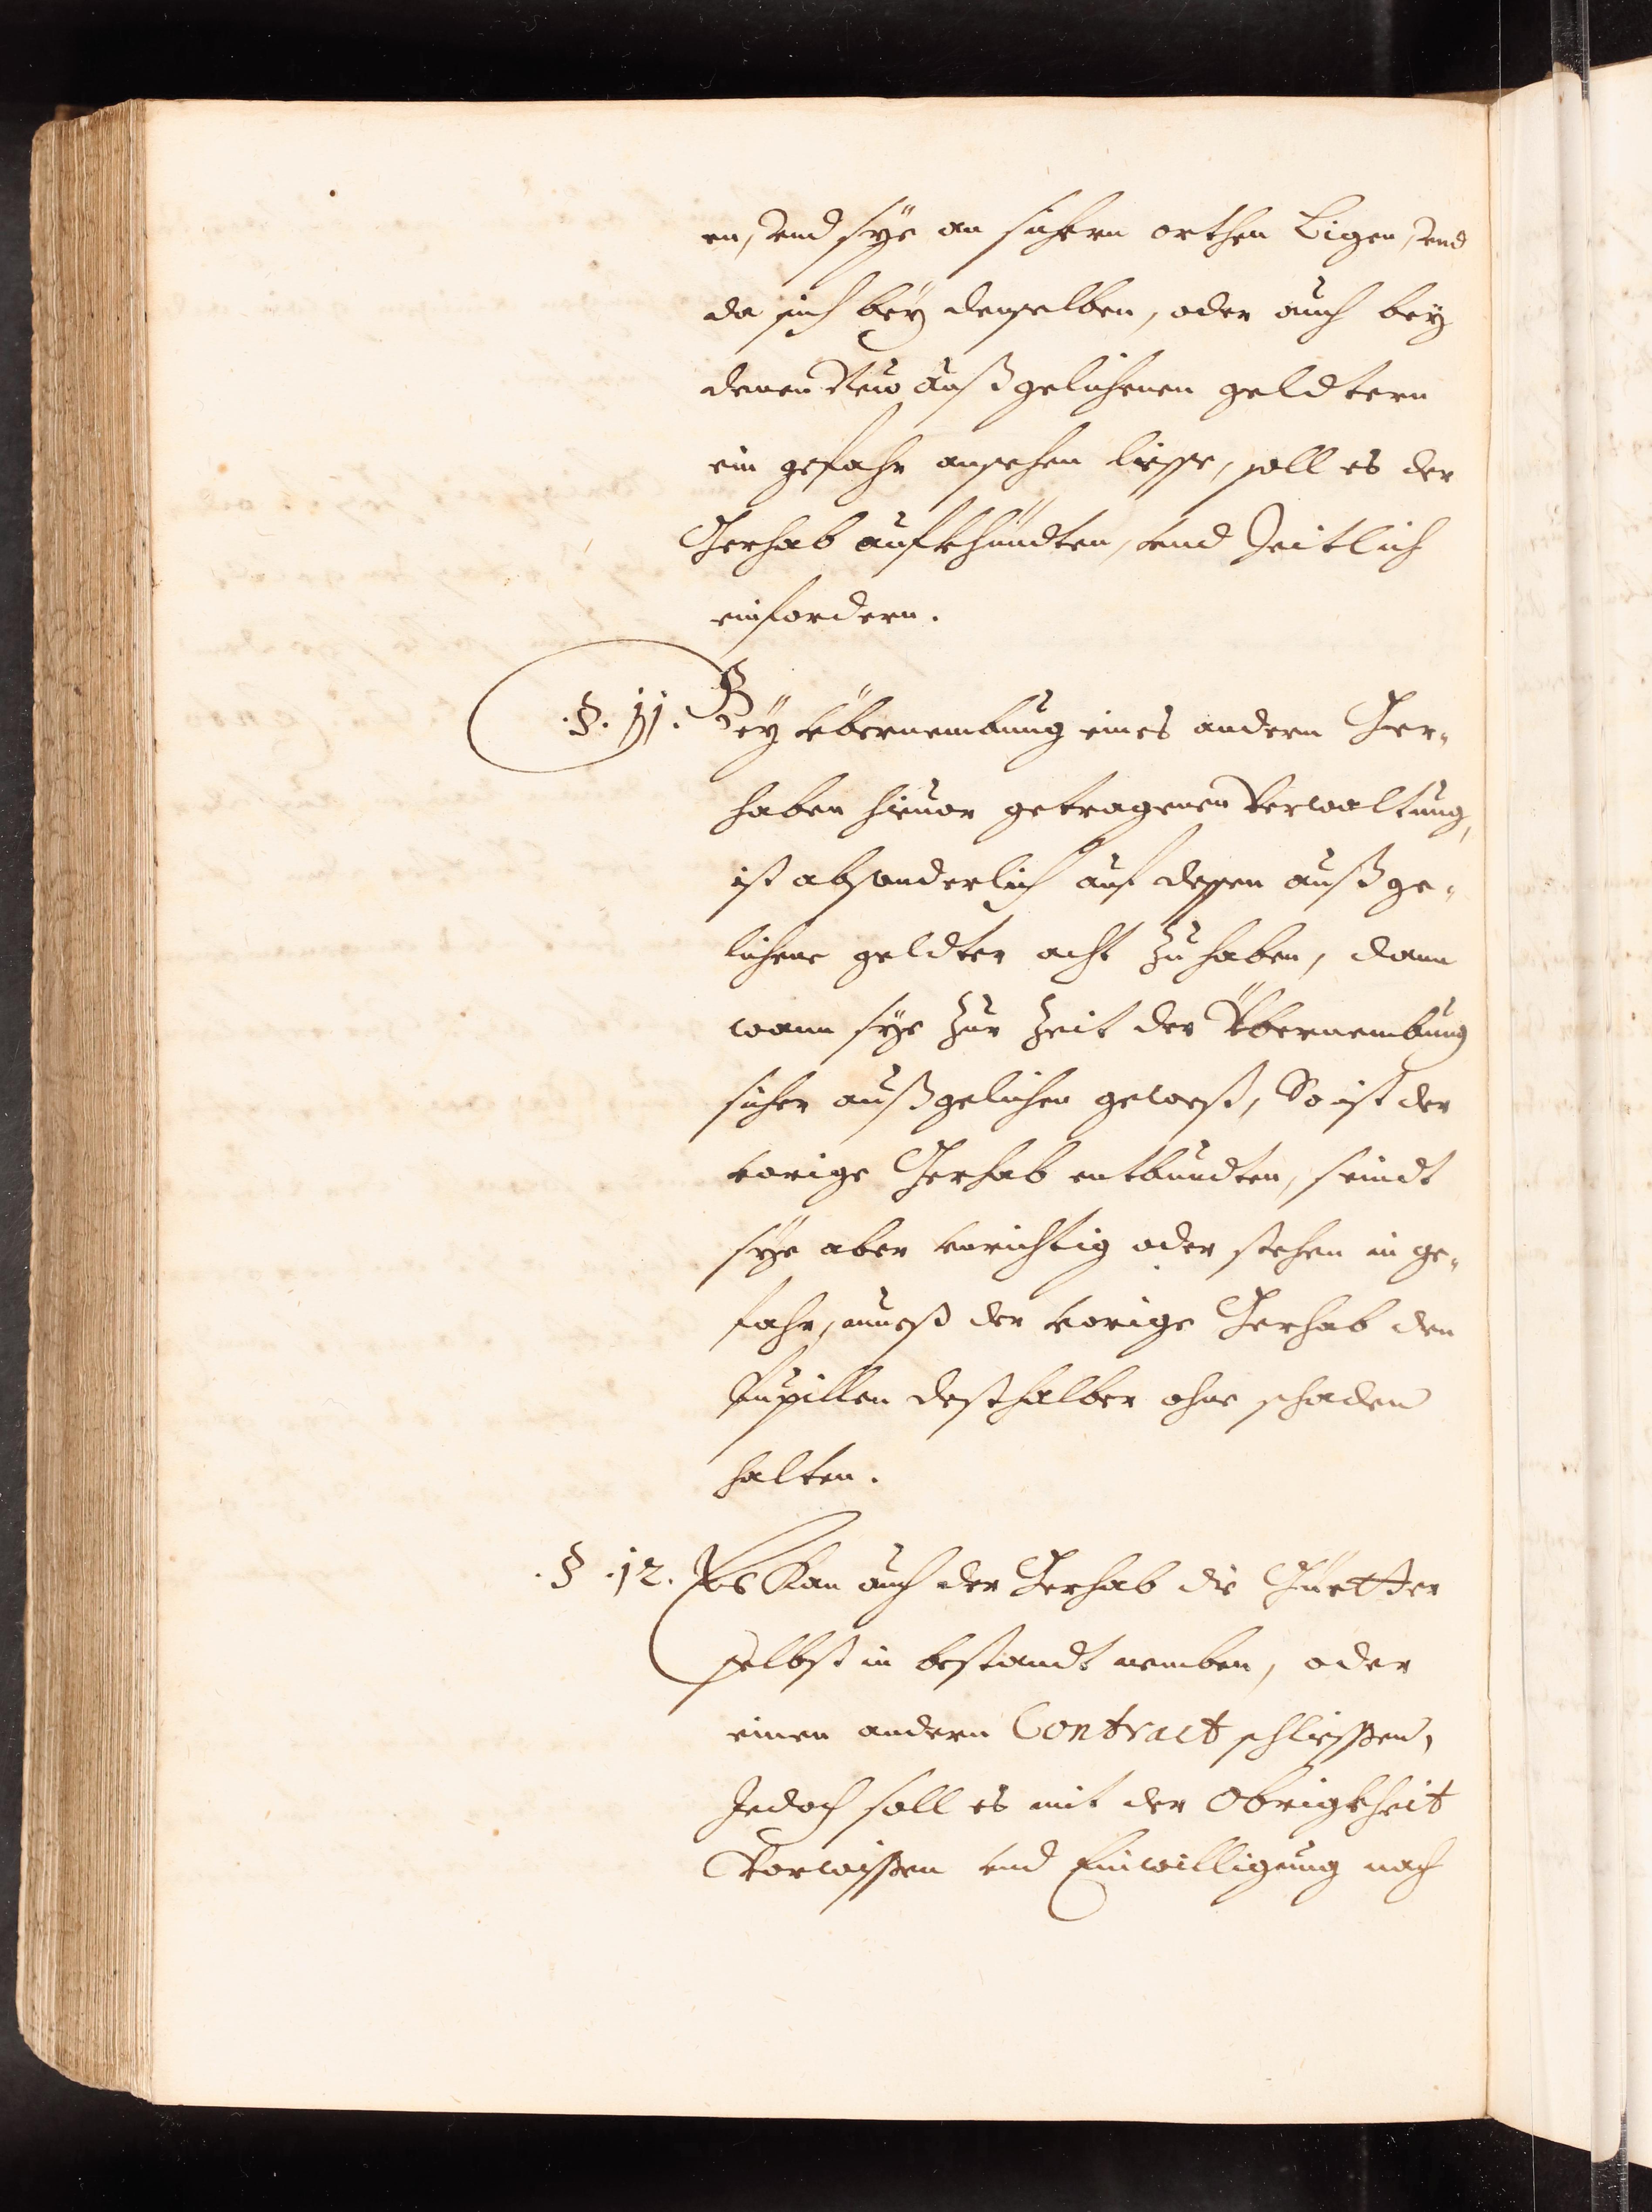 en, vnd sÿe an sichern orthen Ligen, vnd
da sich beÿ denselben, oder auch beÿ
denen Neu außgelichenen geldtern
ein gefahr ansehen liesse, soll es der
Gerhab aufkhündten, vnd Zeitlich
einfordern.
.§. 11. Beÿ vbernembung eines andern Ger-
haben hieuor getragenen Verwaltung,
ist absonderlich auf dessen außge-
lichene geldter acht zu haben, dann
wann sÿe zur Zeit der Vbernembung
sicher außgelichen gewest, So ist der
vorige Gerhab entbundten, seindt
sÿe aber vnrichtig oder stehen in ge-
fahr, muess der vorige Gerhab den
Pupillen desthalber ohne schaden
halten.
.§ .12. Es Kan auch der Gerhab die Güetter
selbst in bestandt nemben, oder
einen andern Contract schliessen,
Jedoch soll es mit der Obrigkheit
Vorwissen vnd Einwilligung nach